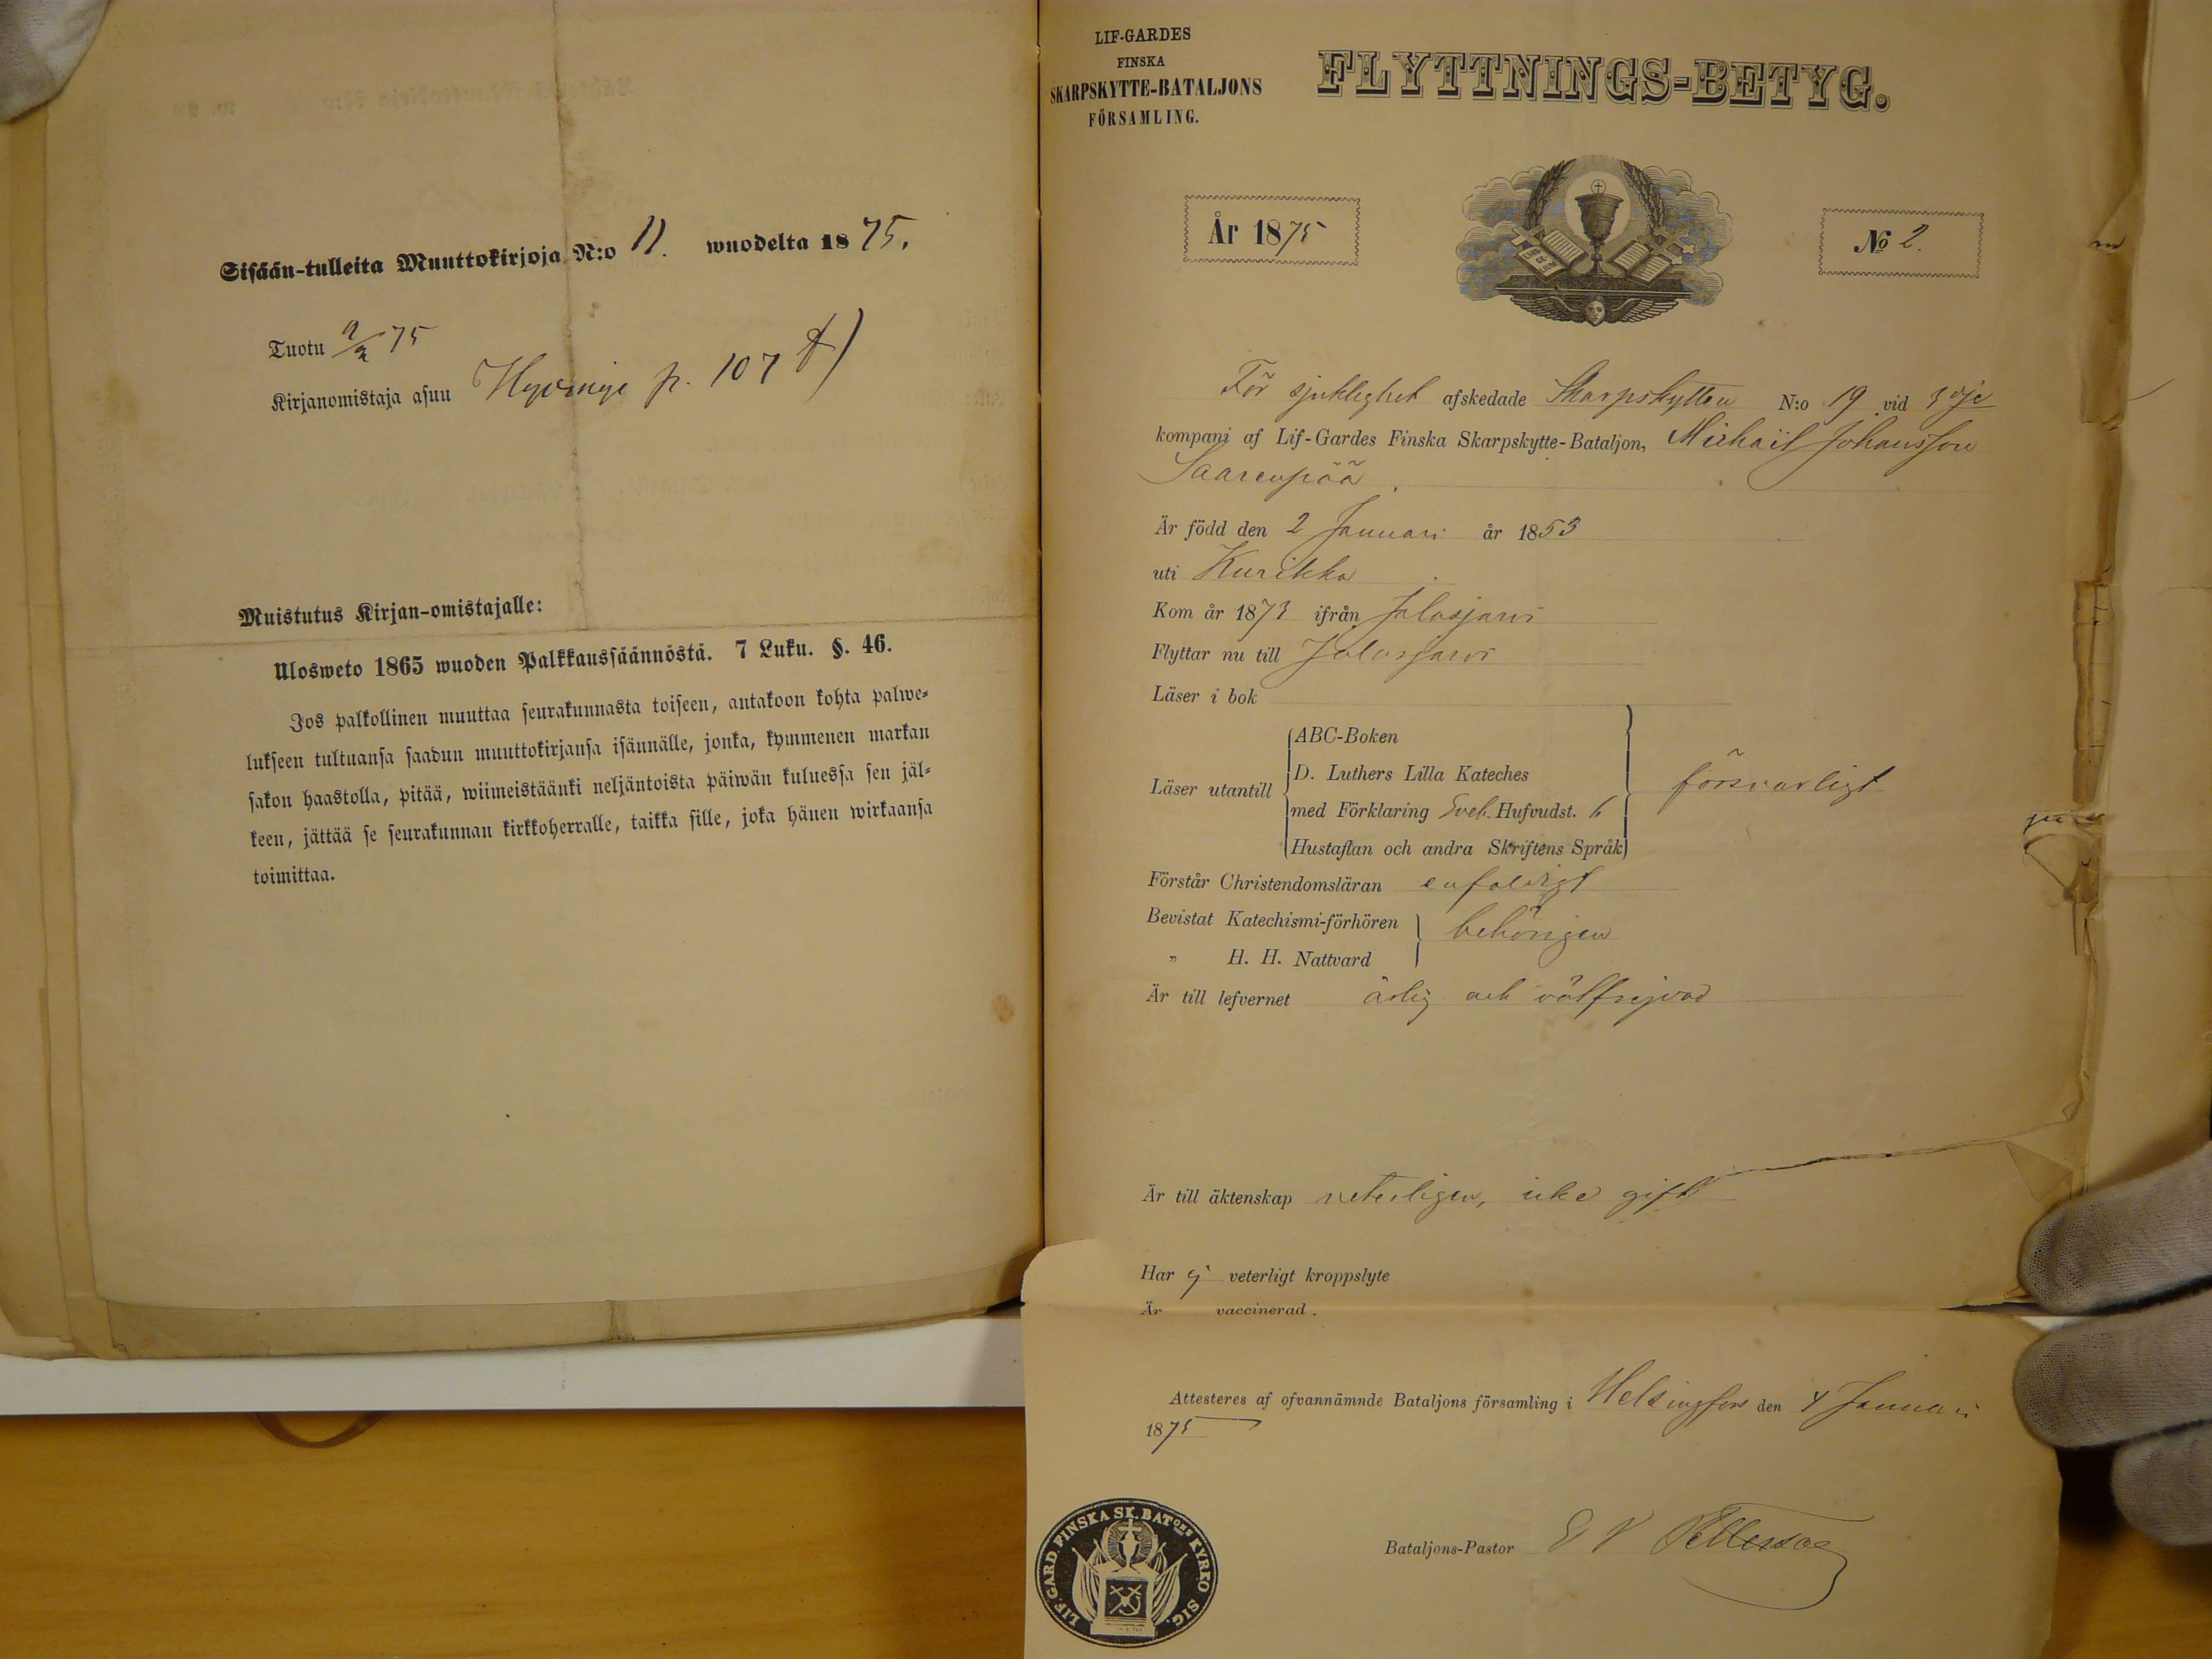 Sisään-tulleita Muuttokirjoja N:o 11. wuodelta 1875.
Tuotu 9/2 75
Kirjanomistaja asuu p. 107
Muistutus Kirjan-omistajalle:
Ulosweto 1865 wuoden Palkkaussäännöstä. 7 Luku. §. 46.
Jos palkollinen muuttaa seurakunnasta toiseen, antakoon kohta palwe-
lukseen tultuansa saadun muuttokirjansa isännälle, jonka, kymmenen markan
sakon haastolla, pitää, wiimeistäänki neljäntoista päiwän kuluessa sen jäl-
keen, jättää se seurakunnan kirkkoherralle, taikka sille, joka hänen wirkaansa
toimittaa.
LIF-GARDES
FINSKA
SKARPSKYTTE-BATALJONS
FÖRSAMLING.
FLYTTNINGS-BETYG.
År 1875
No 2.
För sjuklighet afskedade Skarpskytten N:o 19 vid 3dje
kompani af Lif-Gardes Finska Skarpskytte-Bataljon, Michaël Johansson
Saarenpää
Är född den 2 Januari år 1853
uti Kurikka
Kom år 1873 ifrån Jalasjarvi
Flyttar nu till Jalasjarvi
Läser i bok
ABC-Boken
D. Luthers Lilla Kateches
Läser utantill
med Förklaring Sveb. Hufvudst. 6
försvarligt
Hustaflan och andra Skriftens Språk
Förstår Christendomsläran enfaldigt
Bevistat Katechismi-förhören
behörigen
" H. H. Nattvard
Är till lefvernet ärlig och välfrejdad
Är till äktenskap veterligen, icke gift
Har ej veterligt kroppslyte
Är vaccinerad.
Attesteres af ofvannämnde Bataljons församling i Helsingfors den 4 Januari
1875
Bataljons-Pastor
LIF. GARD. FINSKA SK. BATONS KYRKO SIG.